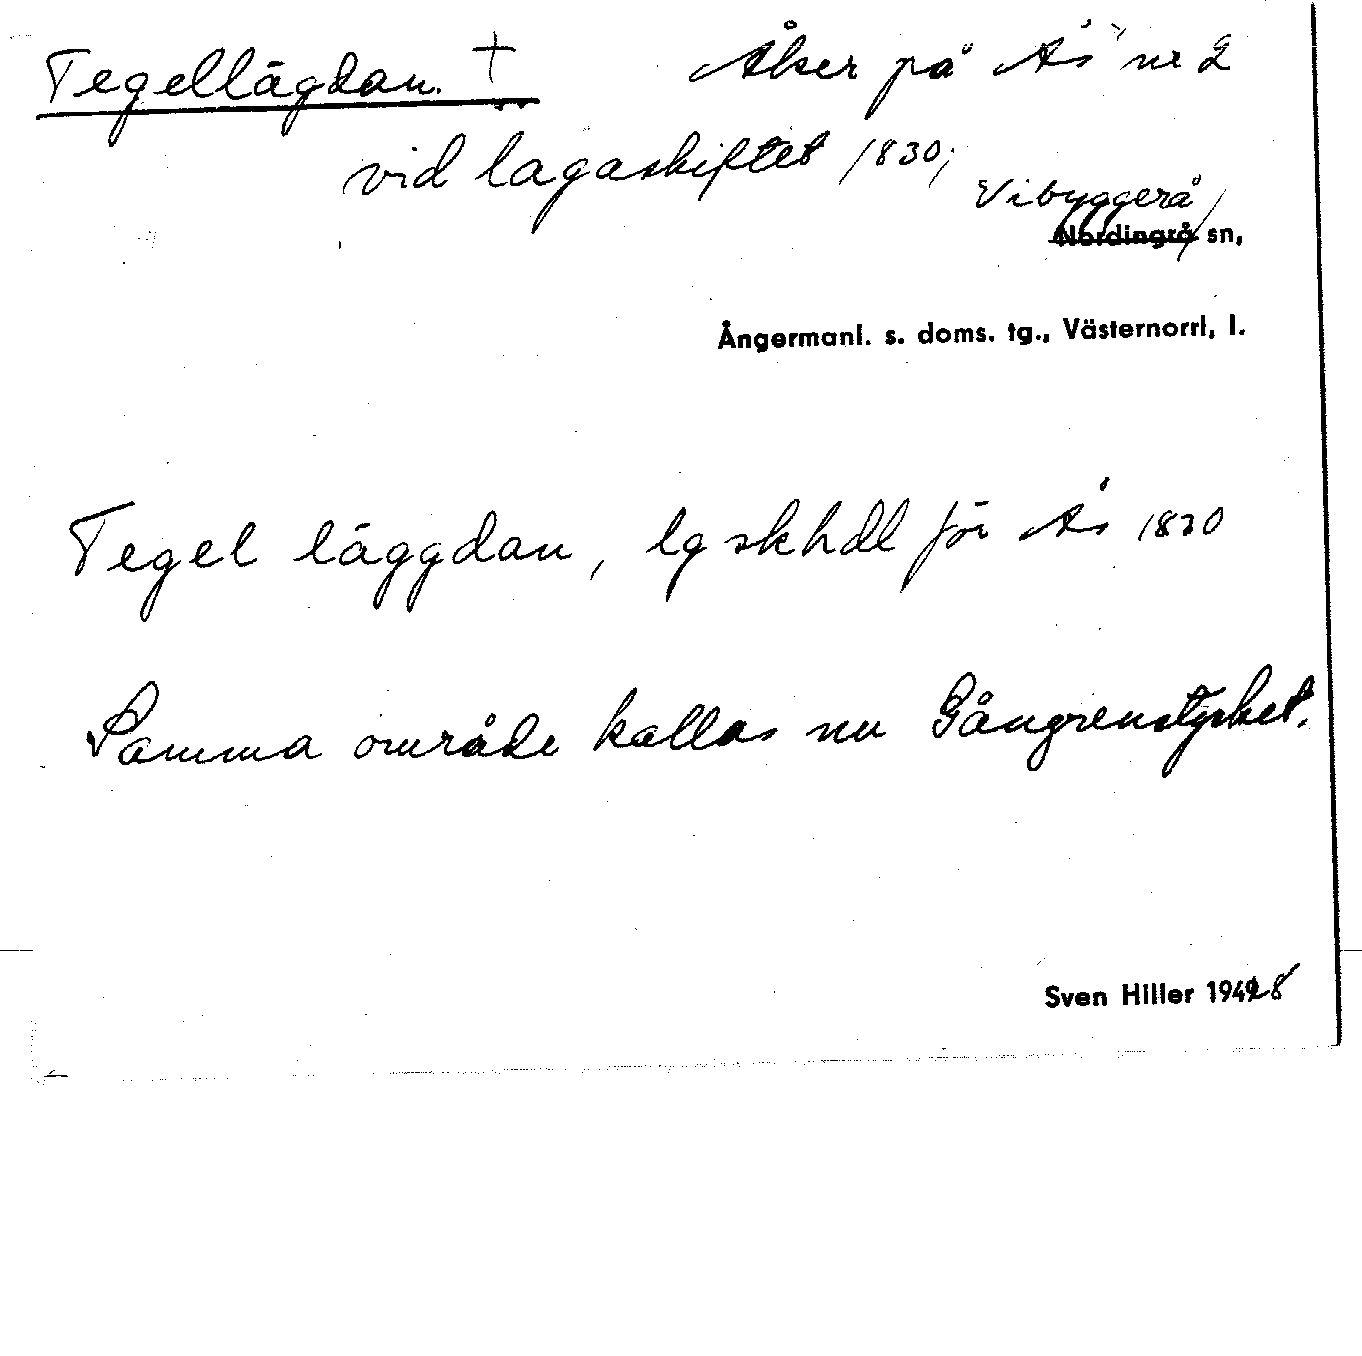 Tegellägdan. † Åker på Ås nr 2
vid lagaskiftet 1830;
Vibyggerå,
Nordingrå sn,
Ångermanl. s. doms. tg., Västernorrl, l.
Tegel läggdan, lg skhdl för Ås 1830
Samma område kallas nu Gångrenstycket.
Sven Hiller 1948